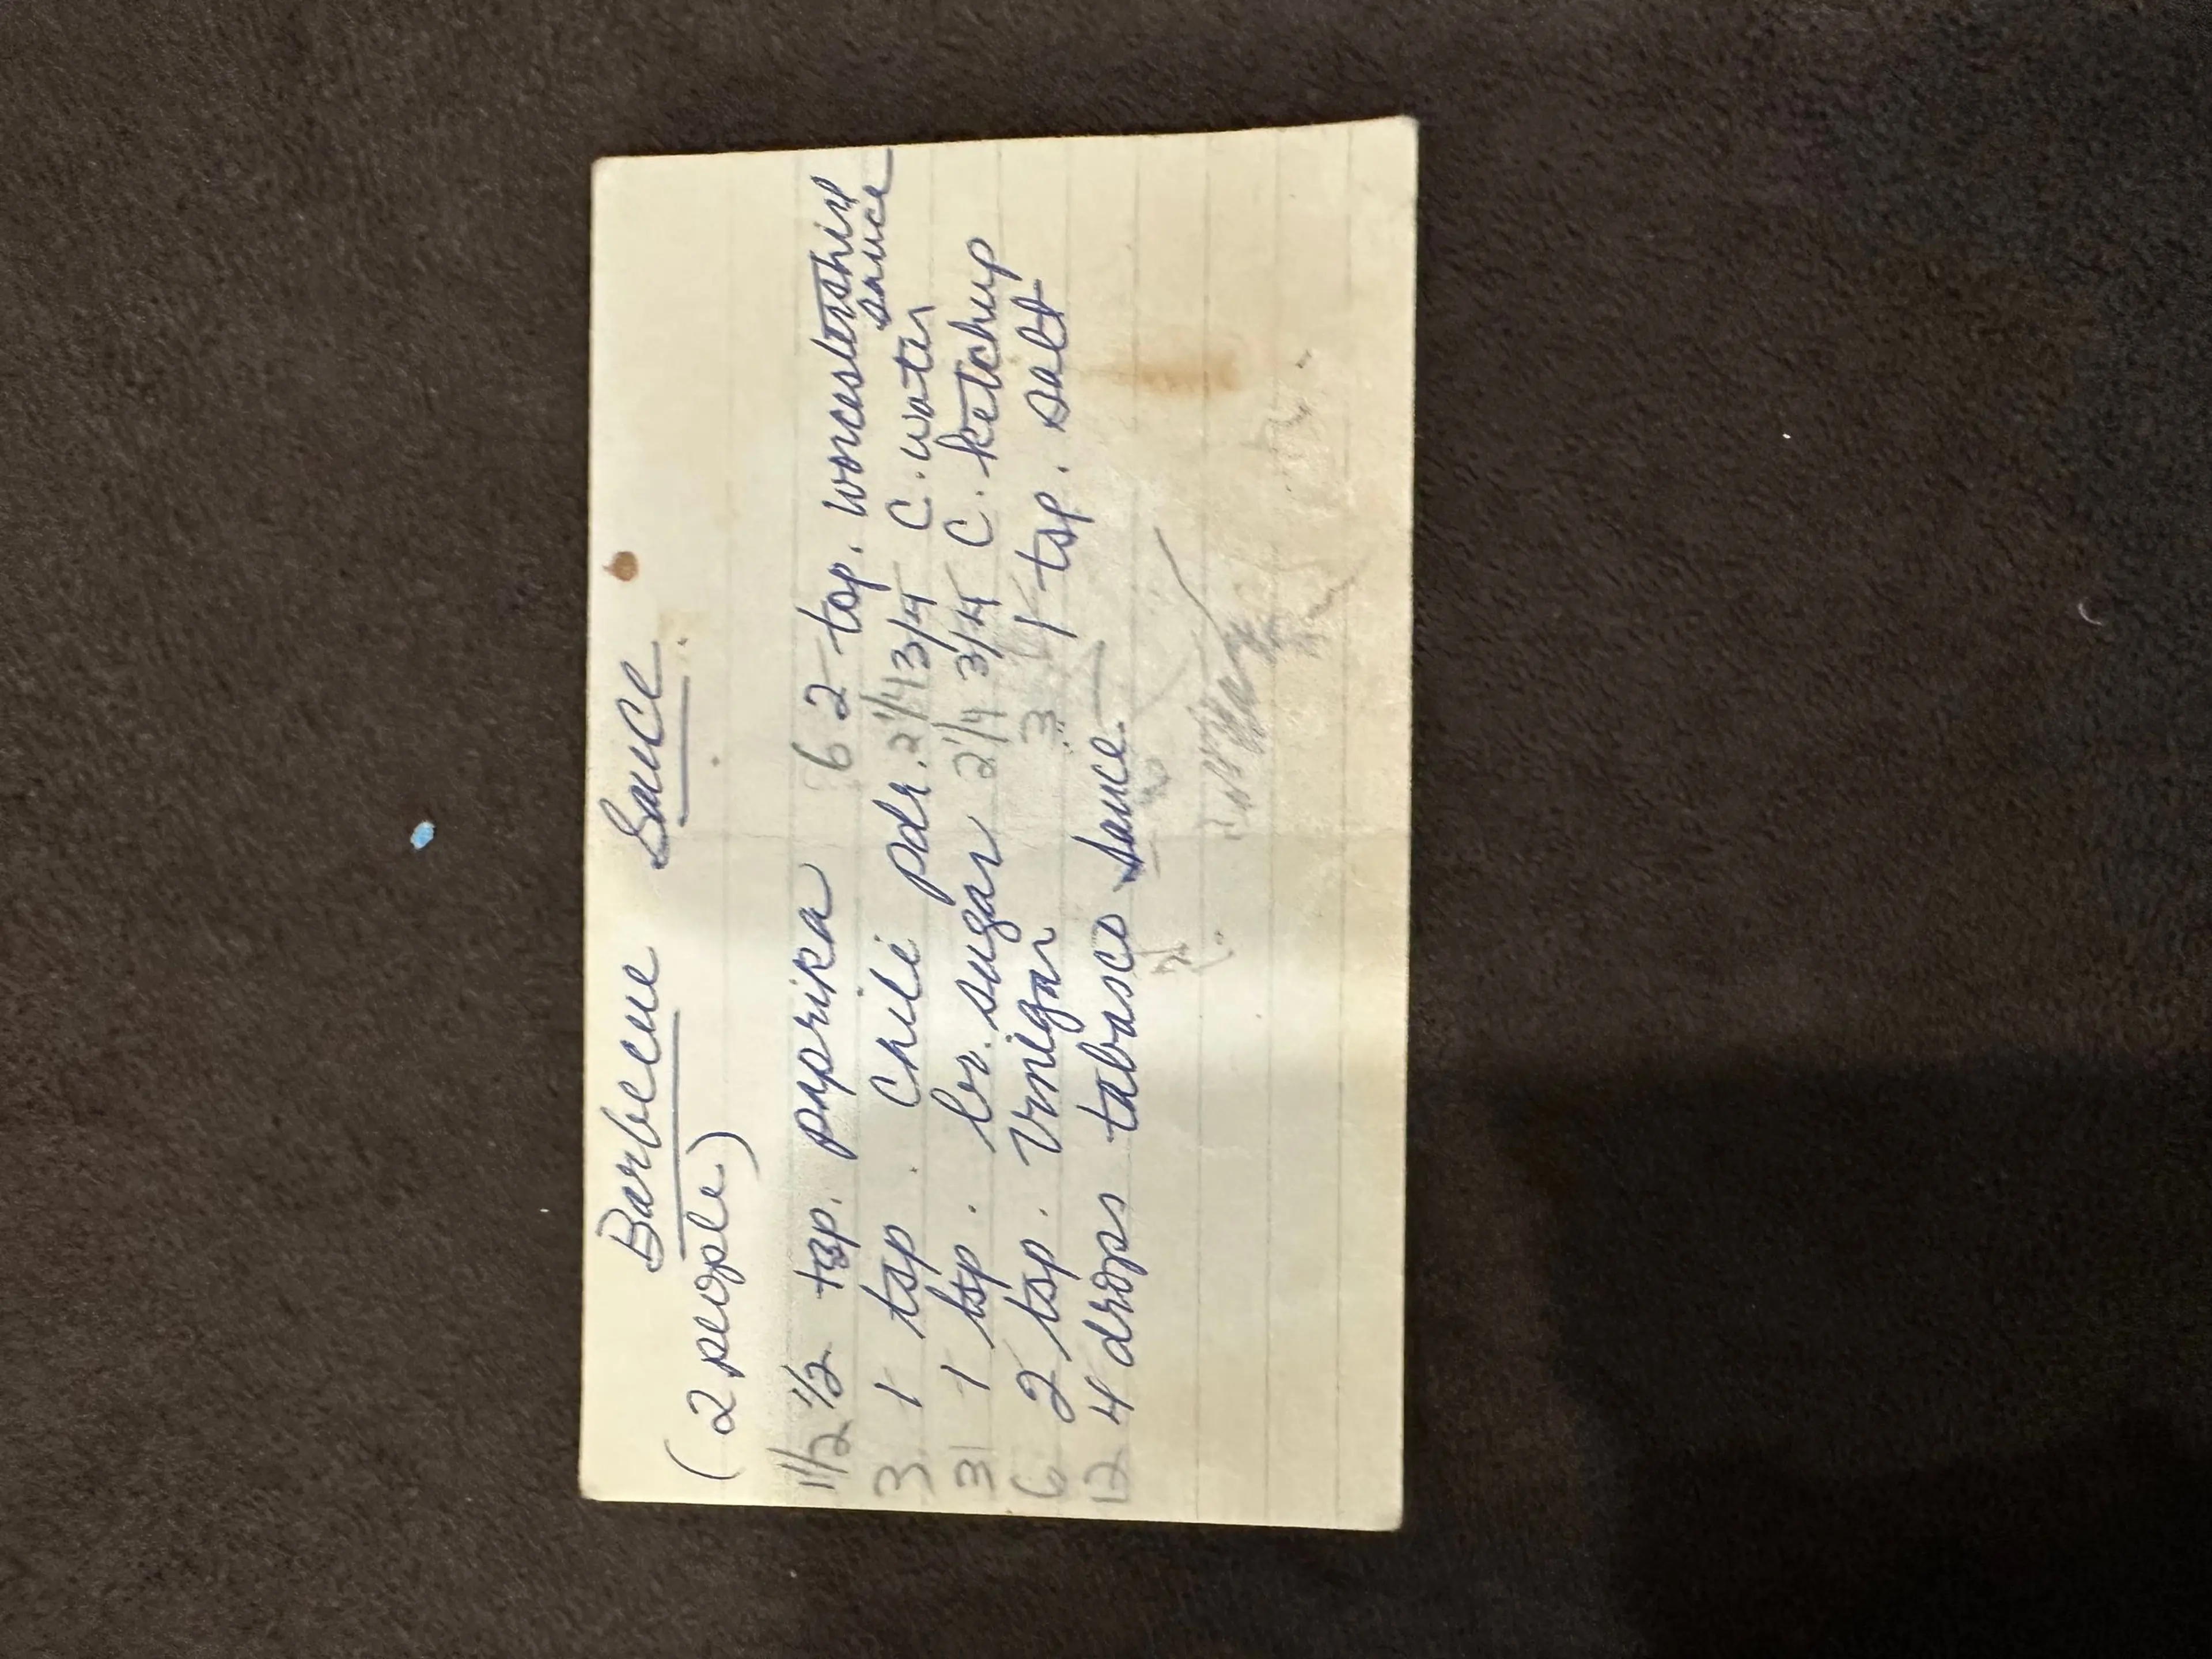 Barbecue Sauce
(2 people)
1 1/2 1/2 tsp. paprika 6 2 tsp. worcestershire sauce
3 1 tsp. Chili pdr. 2 1/4 3/4 C. water
3 1 tsp. br. sugar 2 1/4 3/4 C. ketchup
6 2 tsp. Vinegar 3 1 tsp. salt
12 4 drops tabasco sauce